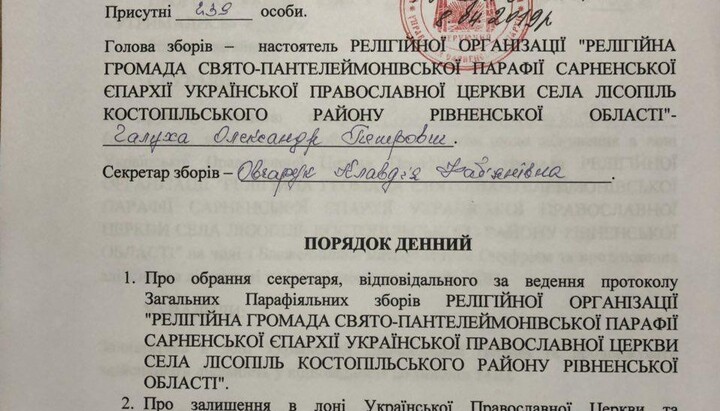 Присутні 239 особи.
8.04.2019р
Голова зборів – настоятель РЕЛІГІЙНОЇ ОРГАНІЗАЦІЇ "РЕЛІГІЙНА
ГРОМАДА СВЯТО-ПАНТЕЛЕЙМОНІВСЬКОЇ ПАРАФІЇ САРНЕНСЬКОЇ
ЄПАРХІЇ УКРАЇНСЬКОЇ ПРАВОСЛАВНОЇ ЦЕРКВИ СЕЛА ЛІСОПІЛЬ
КОСТОПІЛЬСЬКОГО РАЙОНУ РІВНЕНСЬКОЇ ОБЛАСТІ"-
Галуха Олександр Петрович.
Секретар зборів – Овчарук Клавдія Кас'янівна.
ПОРЯДОК ДЕННИЙ
1. Про обрання секретаря, відповідального за ведення протоколу
Загальних Парафіяльних зборів РЕЛІГІЙНОЇ ОРГАНІЗАЦІЇ
"РЕЛІГІЙНА ГРОМАДА СВЯТО-ПАНТЕЛЕЙМОНІВСЬКОЇ ПАРАФІЇ
САРНЕНСЬКОЇ ЄПАРХІЇ УКРАЇНСЬКОЇ ПРАВОСЛАВНОЇ ЦЕРКВИ
СЕЛА ЛІСОПІЛЬ КОСТОПІЛЬСЬКОГО РАЙОНУ РІВНЕНСЬКОЇ
ОБЛАСТІ".
2. Про залишення в лоні Української Православної Церкви та